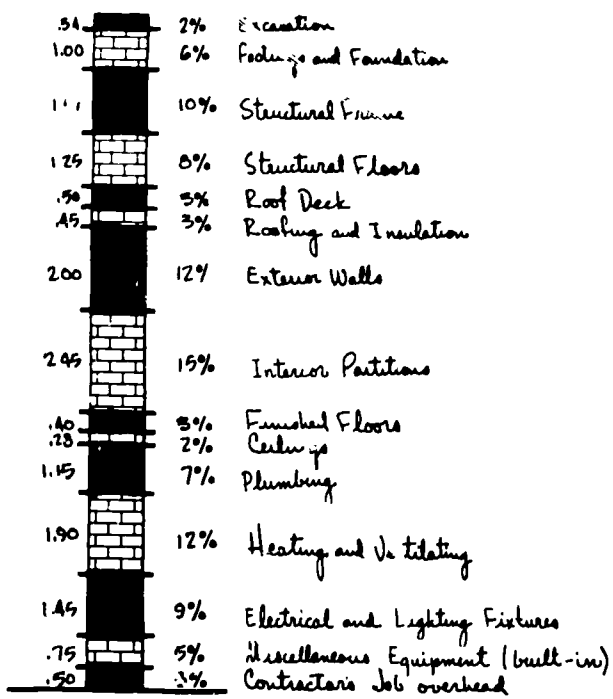 .34 2% Excavation
1.00 6% Footings and Foundation
10% Structural Frame
1.25 8% Structural Floors
.50 3% Roof Deck
.45 3% Roofing and Insulation
2.00 12% Exterior Walls
2.45 15% Interior Partitions
.40 3% Finished Floors
.28 2% Ceilings
1.15 7% Plumbing
1.90 12% Heating and Ventilating
1.45 9% Electrical and Lighting Fixtures
.75 5% Miscellaneous Equipment (built-in)
.50 3% Contractor's Job overhead